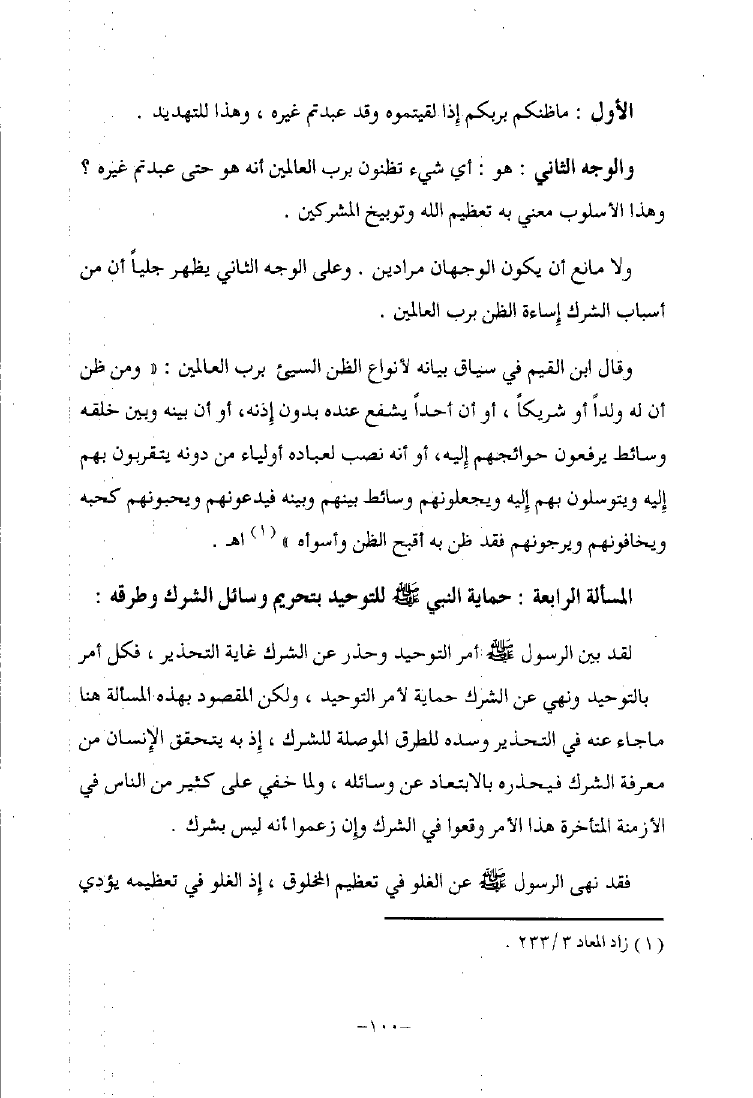 الأول : ماظنكم بربكم إذا لقيتموه وقد عبدتم غيره ، وهذا للتهديد .
والوجه الثاني : هو : أي شيء تظنون برب العالمين أنه هو حتى عبدتم غيره ؟
وهذا الأسلوب معني به تعظيم الله وتوبيخ المشركين .
ولا مانع أن يكون الوجهان مرادين . وعلى الوجه الثاني يظهر جلياً أن من
أسباب الشرك إساءة الظن برب العالمين .
وقال ابن القيم في سياق بيانه لأنواع الظن السيئ برب العالمين : « ومن ظن
أن له ولداً أو شريكاً ، أو أن أحداً يشفع عنده بدون إذنه، أو أن بينه وبين خلقه
وسائط يرفعون حوائجهم إليه، أو أنه نصب لعباده أولياء من دونه يتقربون بهم
إليه ويتوسلون بهم إليه ويجعلونهم وسائط بينهم وبينه فيدعونهم ويحبونهم كحبه
ويخافونهم ويرجونهم فقد ظن به أقبح الظن وأسوأه » (١) اهـ .
المسألة الرابعة : حماية النبي ﷺ للتوحيد بتحريم وسائل الشرك وطرقه :
لقد بين الرسول ﷺ أمر التوحيد وحذر عن الشرك غاية التحذير ، فكل أمر
بالتوحيد ونهي عن الشرك حماية لأمر التوحيد ، ولكن المقصود بهذه المسألة هنا
ماجاء عنه في التحذير وسده للطرق الموصلة للشرك ، إذ به يتحقق الإنسان من
معرفة الشرك فيحذره بالابتعاد عن وسائله ، ولما خفي على كثير من الناس في
الأزمنة المتأخرة هذا الأمر وقعوا في الشرك وإن زعموا أنه ليس بشرك .
فقد نهى الرسول ﷺ عن الغلو في تعظيم المخلوق ، إذ الغلو في تعظيمه يؤدي
(١) زاد المعاد ٢٣٣/٣ .
-١٠٠-